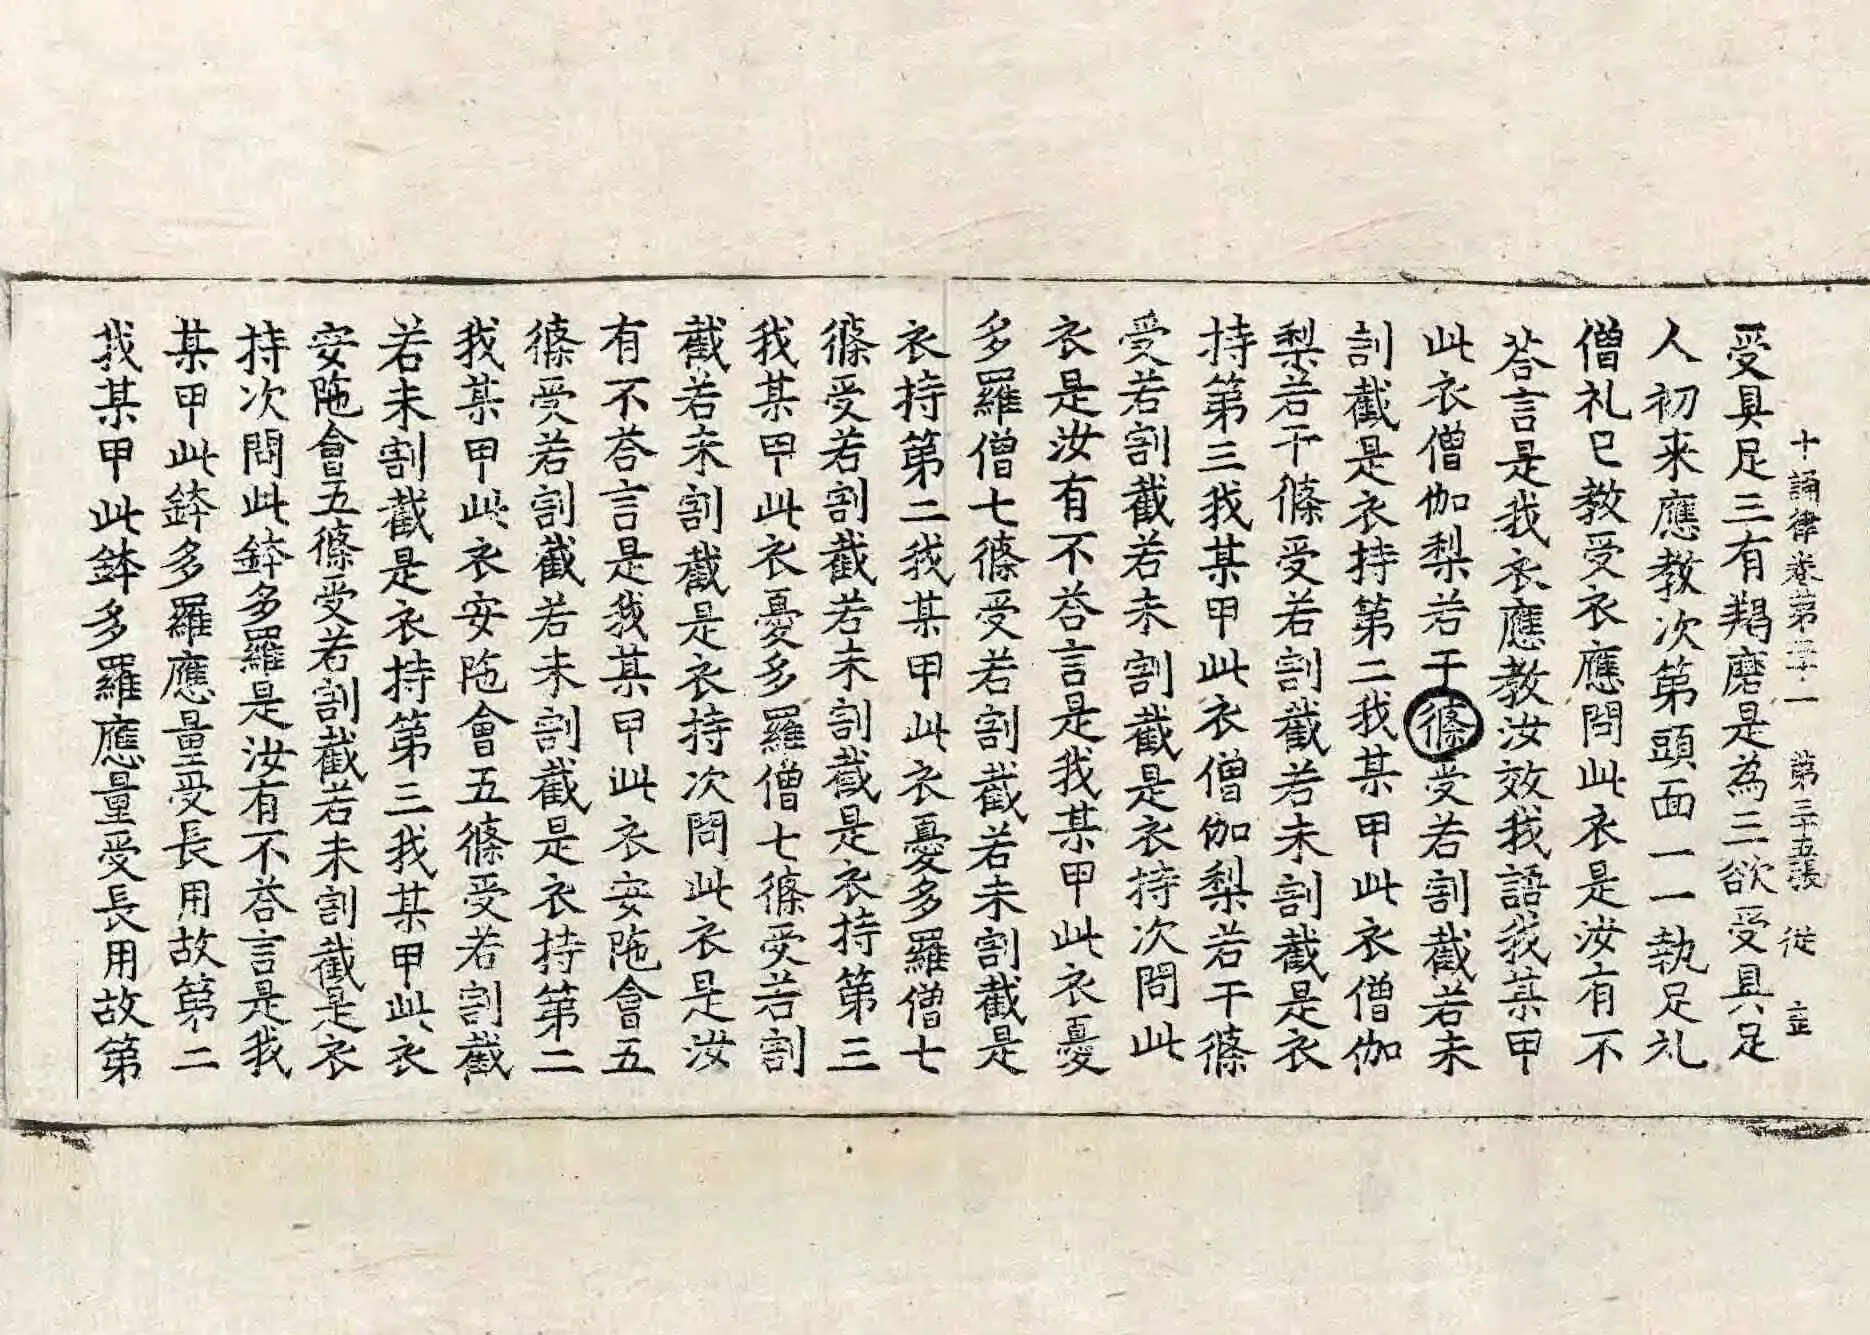 十誦律卷第二十一 第三十五張 従
受具足三有羯磨是為三欲受具足
人初来應教次第頭面一一執足礼
僧礼已教受衣應問此衣是汝有不
荅言是我衣應教汝效我語我某甲
此衣僧伽梨若干條受若割截若未
割截是衣持第二我某甲此衣僧伽
梨若干條受若割截若未割截是衣
持第三我某甲此衣僧伽梨若干條
受若割截若未割截是衣持次問此
衣是汝有不荅言是我某甲此衣憂
多羅僧七條受若割截若未割截是
衣持第二我某甲此衣憂多羅僧七
條受若割截若未割截是衣持第三
我某甲此衣憂多羅僧七條受若割
截若未割截是衣持次問此衣是汝
有不荅言是我某甲此衣安陁會五
條受若割截若未割截是衣持第二
我某甲此衣安陁會五條受若割截
若未割截是衣持第三我某甲此衣
安陁會五條受若割截若未割截是衣
持次問此鉢多羅是汝有不荅言是我
某甲此鉢多羅應量受長用故第二
我某甲此鉢多羅應量受長用故第